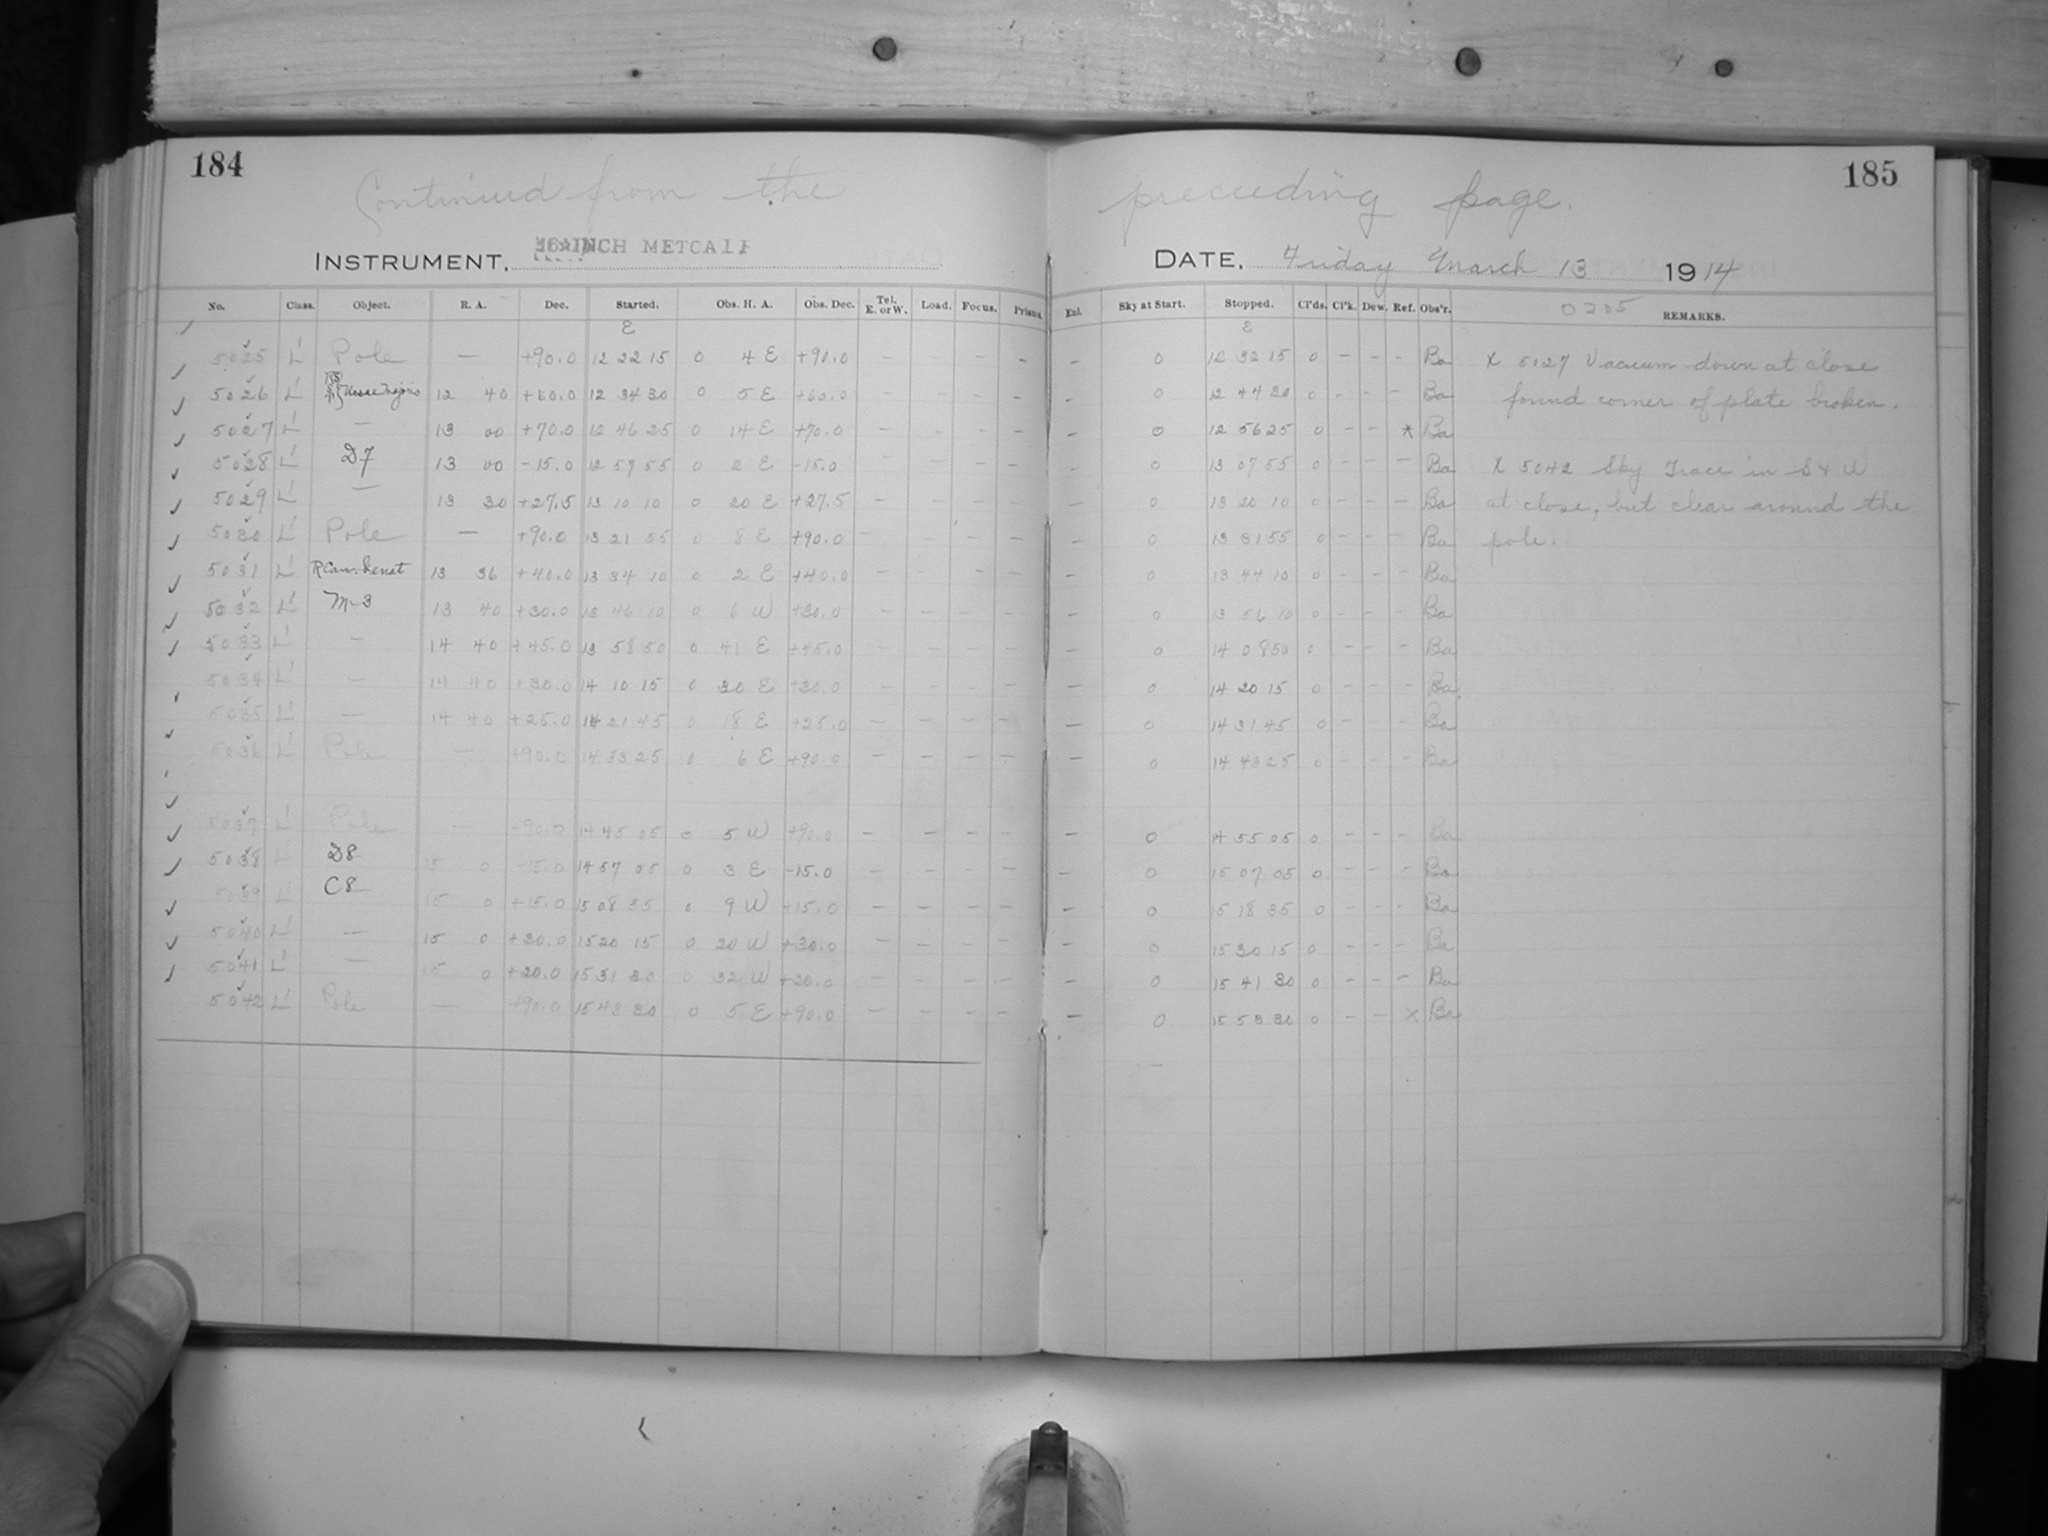 184
185
Continued from the preceeding page.
INSTRUMENT, 16 INCH METCALF
DATE, Friday March 13 1914
No. Class. Object. R. A. Dec. Started. Obs. H. A. Obs. Dec. Tel. E. or W. Load. Focus. Prisms. Enl. Sky at Start. Stopped. Cl'ds. Cl'k. Dew. Ref. Obs'r. REMARKS.
E E
5025 L' Pole — +90.0 12 22 15 0 4 E +90.0 — — — — — 0 12 32 15 0 — — — Ba X 5027 Vacuum down at close
5026 L' Ursae Majoris 12 40 +60.0 12 34 30 0 5 E +60.0 — — — — — 0 12 44 30 0 — — — Ba found corner of plate broken.
5027 L' — 13 00 +70.0 12 46 25 0 14 E +70.0 — — — — — 0 12 56 25 0 — — X Ba
5028 L' D7 13 00 -15.0 12 57 55 0 2 E -15.0 — — — — — 0 13 07 55 0 — — — Ba X 5042 Sky Trace in S & W
5029 L' — 13 30 +27.5 13 10 10 0 20 E +27.5 — — — — — 0 13 20 10 0 — — — Ba at close, but clear around the
5030 L' Pole — +90.0 13 21 55 0 8 E +90.0 — — — — — 0 13 31 55 0 — — — Ba pole.
5031 L' R Can. Venat 13 36 +40.0 13 34 10 0 2 E +40.0 — — — — — 0 13 44 10 0 — — — Ba
5032 L' M-3 13 40 +30.0 13 46 10 0 6 W +30.0 — — — — — 0 13 56 10 0 — — — Ba
5033 L' — 14 40 +45.0 13 58 50 0 41 E +45.0 — — — — — 0 14 08 50 0 — — — Ba
5034 L' — 14 40 +30.0 14 10 15 0 30 E +30.0 — — — — — 0 14 20 15 0 — — — Ba
5035 L' — 14 40 +25.0 14 21 45 0 18 E +25.0 — — — — — 0 14 31 45 0 — — — Ba
5036 L' Pole — +90.0 14 33 25 0 6 E +90.0 — — — — — 0 14 43 25 0 — — — Ba
5037 L' Pole — +90.0 14 45 05 0 5 W +90.0 — — — — — 0 14 55 05 0 — — — Ba
5038 L' D8 15 0 -15.0 14 57 05 0 3 E -15.0 — — — — — 0 15 07 05 0 — — — Ba
5039 L' C8 15 0 +15.0 15 08 35 0 9 W +15.0 — — — — — 0 15 18 35 0 — — — Ba
5040 L' — 15 0 +30.0 15 20 15 0 20 W +30.0 — — — — — 0 15 30 15 0 — — — Ba
5041 L' — 15 0 +20.0 15 31 30 0 32 W +20.0 — — — — — 0 15 41 30 0 — — — Ba
5042 L' Pole — +90.0 15 43 30 0 5 E +90.0 — — — — — 0 15 53 30 0 — — X Ba